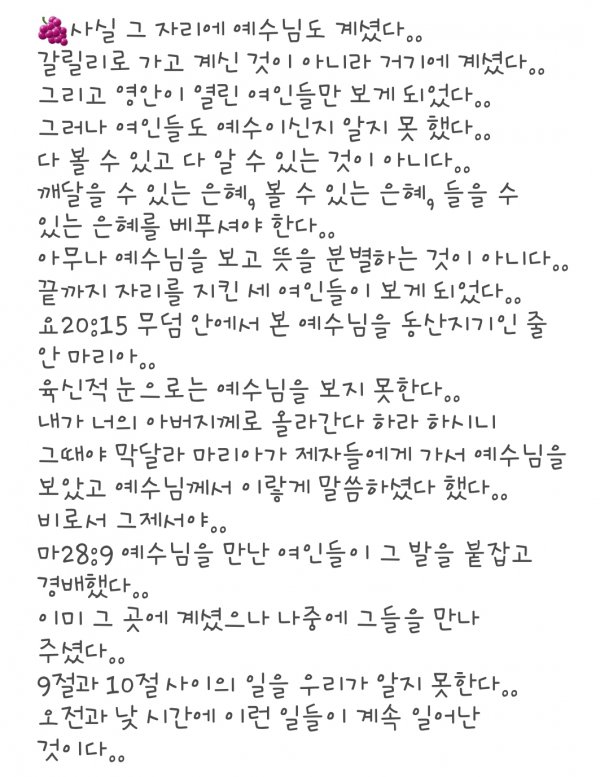 🍇사실 그 자리에 예수님도 계셨다..
갈릴리로 가고 계신 것이 아니라 거기에 계셨다..
그리고 영안이 열린 여인들만 보게 되었다..
그러나 여인들도 예수이신지 알지 못 했다..
다 볼 수 있고 다 알 수 있는 것이 아니다..
깨달을 수 있는 은혜, 볼 수 있는 은혜, 들을 수
있는 은혜를 베푸셔야 한다..
아무나 예수님을 보고 뜻을 분별하는 것이 아니다..
끝까지 자리를 지킨 세 여인들이 보게 되었다..
요20:15 무덤 안에서 본 예수님을 동산지기인 줄
안 마리아..
육신적 눈으로는 예수님을 보지 못한다..
내가 너의 아버지께로 올라간다 하라 하시니
그때야 막달라 마리아가 제자들에게 가서 예수님을
보았고 예수님께서 이랗게 말씀하셨다 했다..
비로서 그제서야..
마28:9 예수님을 만난 여인들이 그 발을 붙잡고
경배했다..
이미 그 곳에 계셨으나 나중에 그들을 만나
주셨다..
9절과 10절 사이의 일을 우리가 알지 못한다..
오전과 낮 시간에 이런 일들이 계속 일어난
것이다..